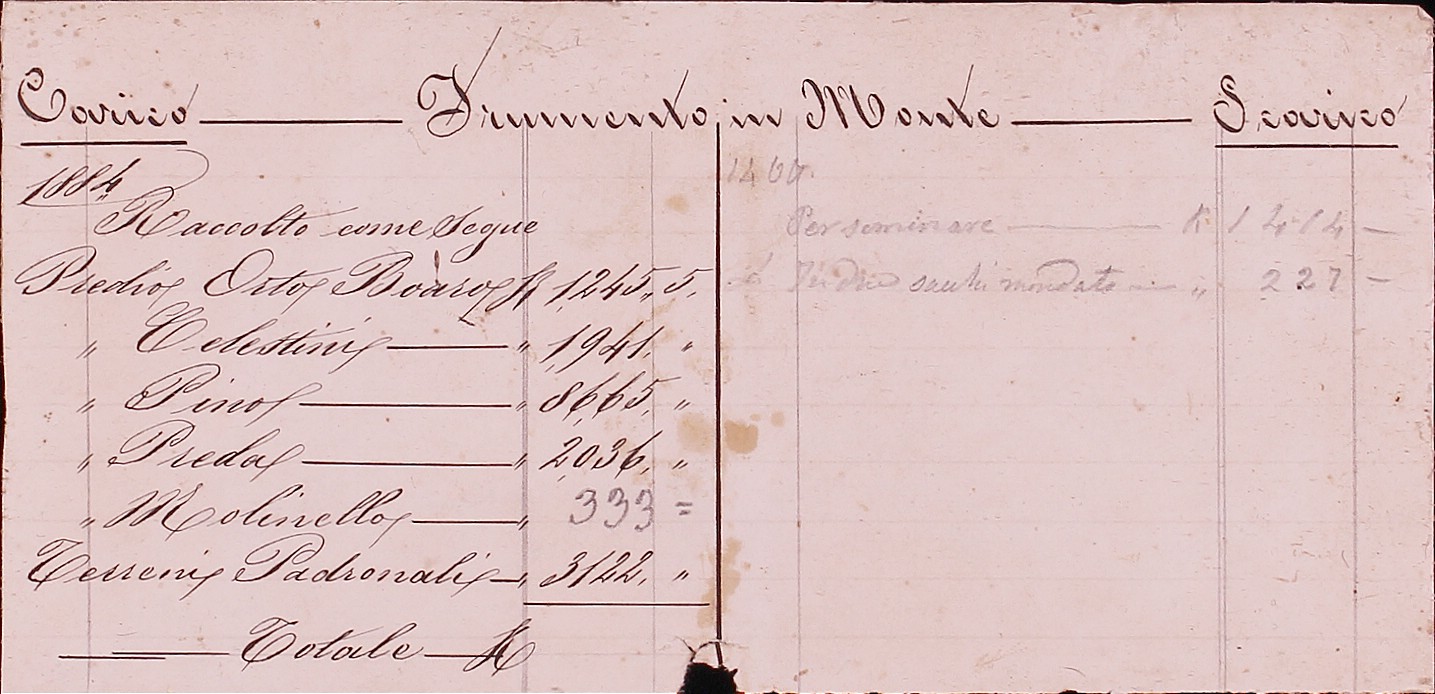 Carico Frumento in Monte Scarico
1884
Raccolto come Segue
Predio Orto Boaro K 1245,, 5.
,, Celestini ,, 1941. ,,
,, Pino ,, 8665. ,,
,, Preda ,, 2036. ,,
,, Molinello ,, 333 =
Terreni Padronali ,, 3122. ,,
Totale K
Per seminare K 1414 —
mondato ,, 227 —